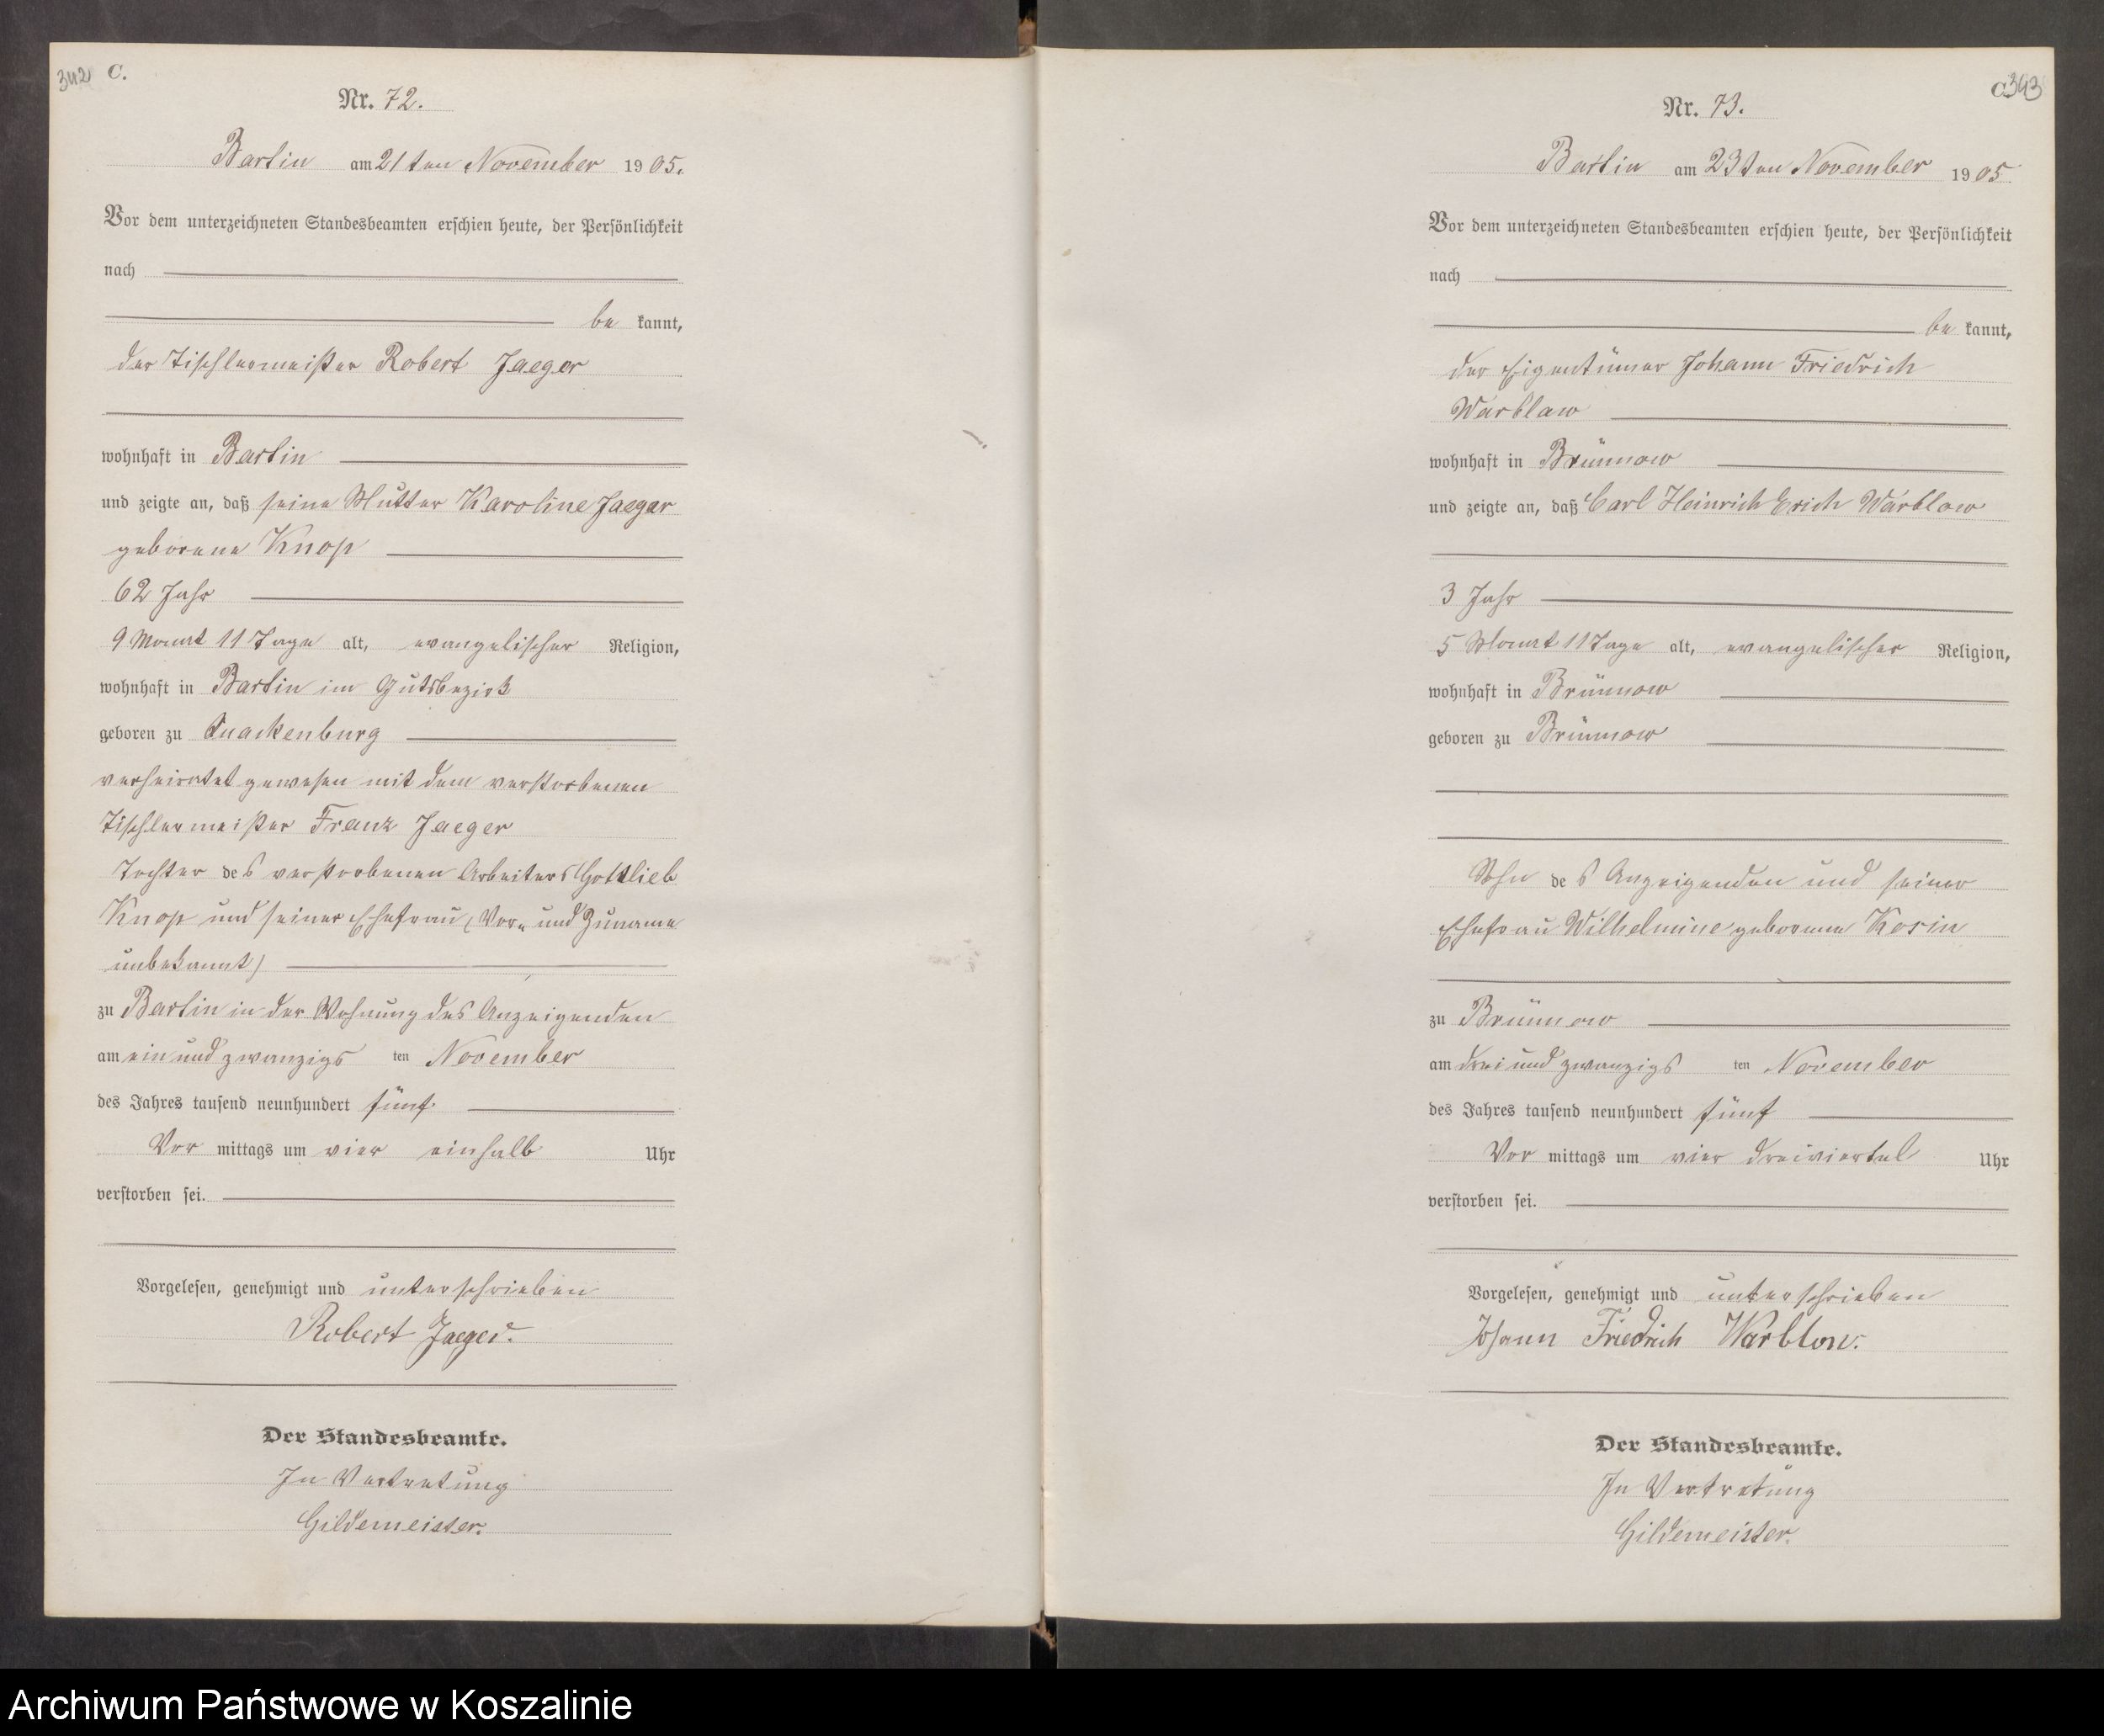 342 C.
Nr. 72.
Bartin am 21ten November 1905.
Vor dem unterzeichneten Standesbeamten erschien heute, der Persönlichkeit
nach
be kannt,
der Tischlermeister Robert Jaeger
wohnhaft in Bartin
und zeigte an, daß seine Mutter Karoline Jaeger
geborene Knop
62 Jahr
9 Monat 11 Tage alt, evangelischer Religion,
wohnhaft in Bartin im Gutsbezirk
geboren zu Quackenburg
verheiratet gewesen mit dem verstorbenen
Tischlermeister Franz Jaeger
Tochter des verstorbenen Arbeiters Gottlieb
Knop und seiner Ehefrau (Vor- und Zuname
unbekannt)
zu Bartin in der Wohnung des Anzeigenden
am ein und zwanzigs ten November
des Jahres tausend neunhundert fünf
Vor mittags um vier einhalb Uhr
verstorben sei.
Vorgelesen, genehmigt und unterschrieben
Robert Jaeger.
Der Standesbeamte.
In Vertretung
Gildemeister.
C. 343
Nr. 73.
Bartin am 23ten November 1905.
Vor dem unterzeichneten Standesbeamten erschien heute, der Persönlichkeit
nach
be kannt,
der Eigentümer Johann Friedrich
Warblow
wohnhaft in Brünnow
und zeigte an, daß Carl Heinrich Erich Warblow
3 Jahr
5 Monat 11 Tage alt, evangelischer Religion,
wohnhaft in Brünnow
geboren zu Brünnow
Sohn des Anzeigenden und seiner
Ehefrau Wilhelmine geborene Kosin
zu Brünnow
am drei und zwanzigs ten November
des Jahres tausend neunhundert fünf
Vor mittags um vier dreiviertel Uhr
verstorben sei.
Vorgelesen, genehmigt und unterschrieben
Johann Friedrich Warblow.
Der Standesbeamte.
In Vertretung
Gildemeister.
Archiwum Państwowe w Koszalinie